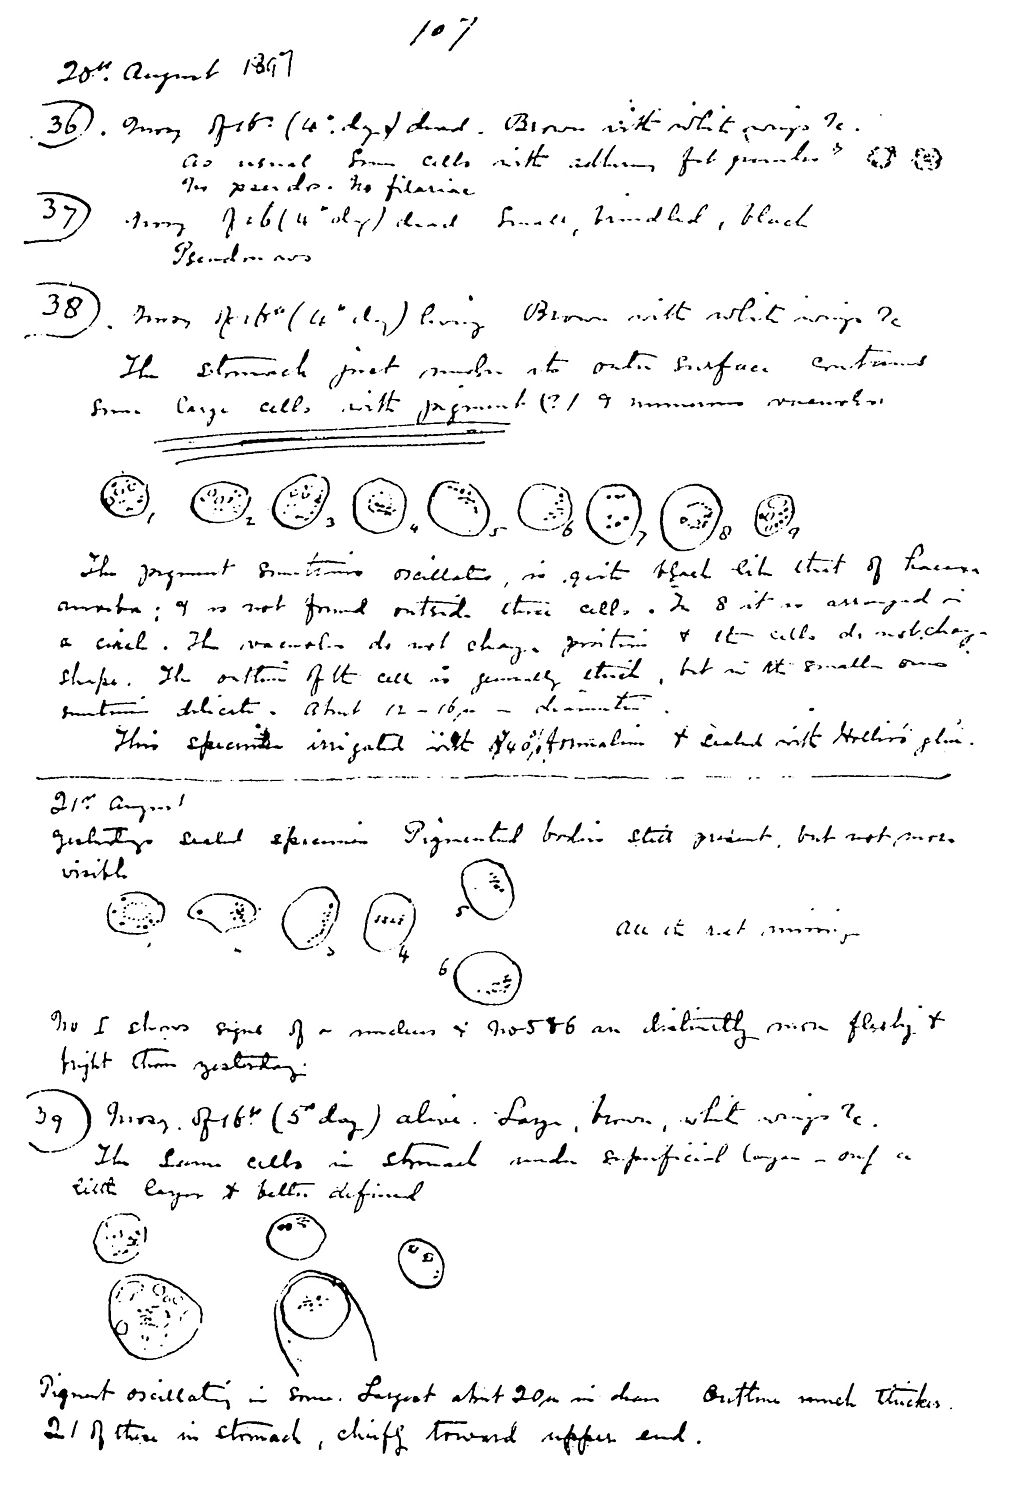 107
20th August 1897
36. Mosq of 16th (4th day) dead. Brown with white wings &c.
As usual some cells with adhering fat granules?
No pseudo. No filariae
37 Mosq of 16 (4th day) dead Small, brindled, black
Pseudo
38. Mosq of 16th (4th day) living Brown with white wings &c
The stomach just under its outer surface contains
some large cells with pigment (?) & numerous vacuoles
1 2 3 4 5 6 7 8 9
The pigment sometimes oscillates, is quite black like that of
amoeba; & is not found outside these cells. In 8 it is arranged in
a circle. The vacuoles do not change position & the cells do not change
shape. The outline of the cell is generally thick, but in the smaller ones
sometimes delicate. About 12-16µ in diameter.
This specimen irrigated with 40% formalin & sealed with Hollis's glue.
21st August
Yesterdays sealed specimen Pigmented bodies still present, but not more
visible
5
3 4
All the rest missing
6
No 1 shows signs of a nucleus & No 5 & 6 are distinctly more fleshy &
bright than yesterday.
39 Mosq. of 16th (5th day) alive. Large, brown, white wings &c.
The same cells in stomach under superficial layer - only a
little larger & better defined
Pigment oscillating in some. Largest about 20µ in diam Outline much thicker.
21 of these in stomach, chiefly toward upper end.